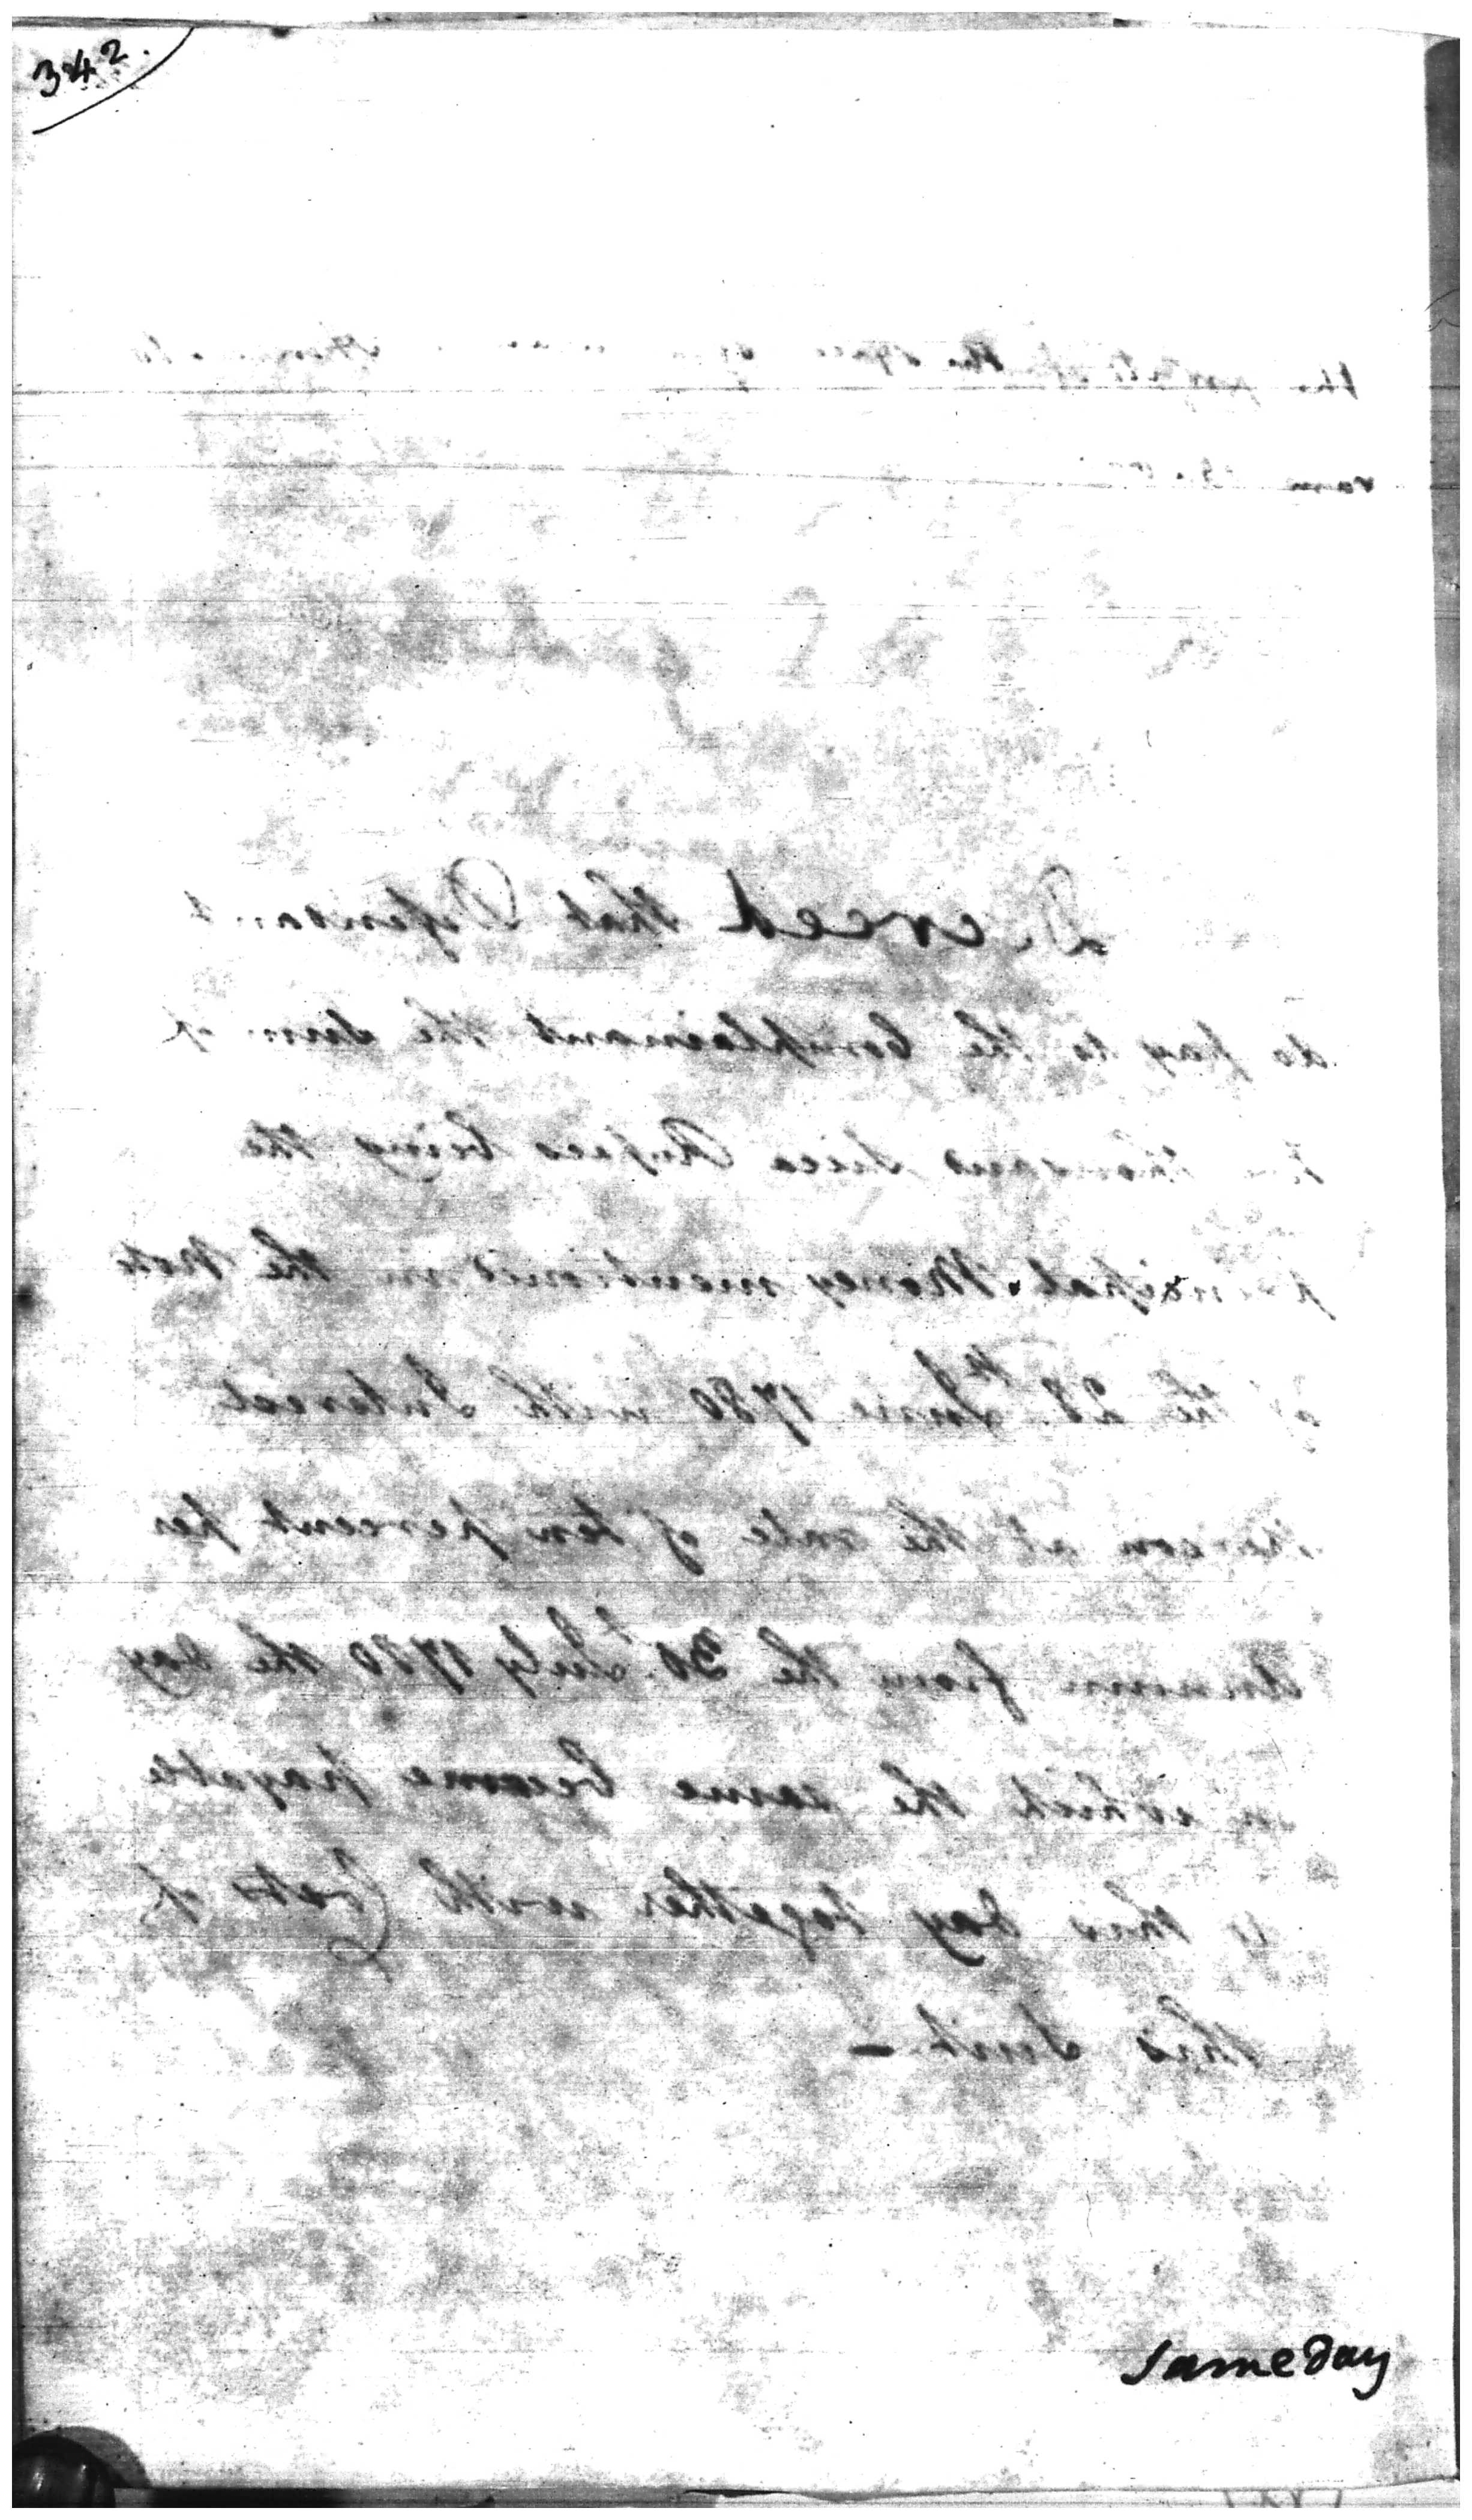 342.
the
Decreed that Defendant
do pay to the Complainant the Sum of
thousand Sicca Rupees being the
principal Money mentioned in the Note
of the 28th June 1780 with Interest
thereon at the rate of ten percent per
Annum from the 30th July 1780 the day
on which the same became payable
to this day together with Costs of
this Suit —
Same day